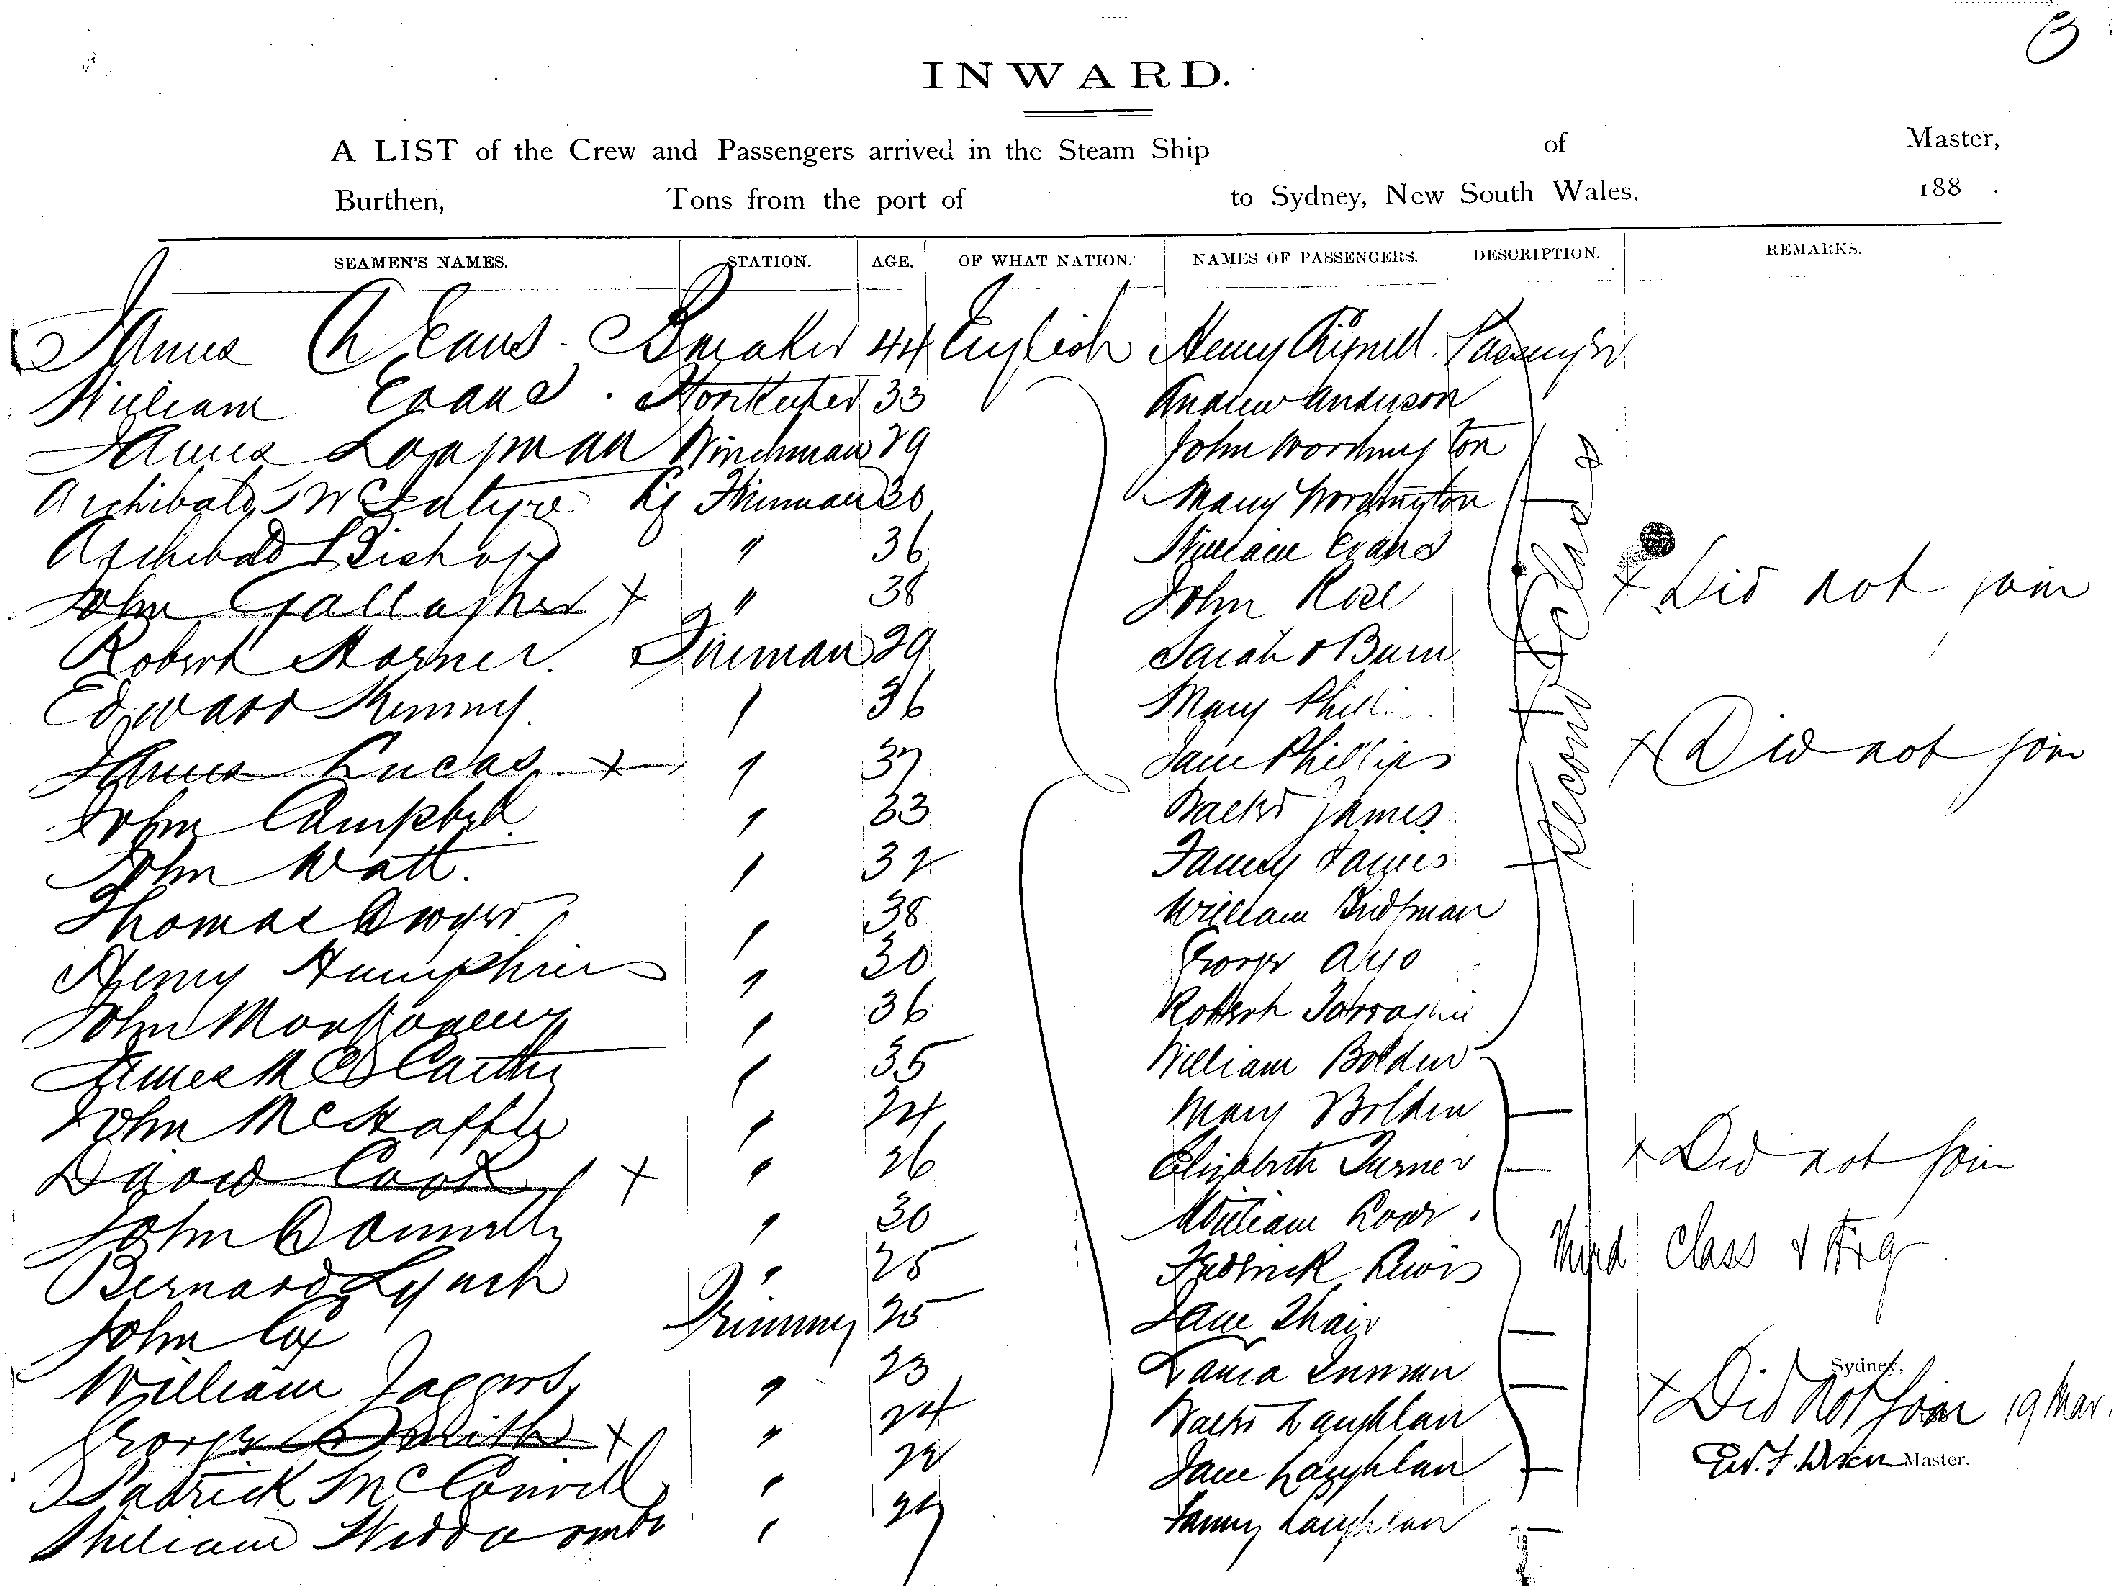 3
INWARD.
A LIST of the Crew and Passengers arrived in the Steam Ship of Master,
Burthen, Tons from the port of to Sydney, New South Wales, 188 .
SEAMEN'S NAMES. STATION. AGE. OF WHAT NATION. NAMES OF PASSENGERS. DESCRIPTION. REMARKS.
James Evans 44 English Henry Passenger
William Evans Storekeeper 33 Andrew Anderson
James Winchman 29 John Worthington
Archibald McIntyre Fireman 30 Mary Worthington
Archibald Bishop " 36 William Evans
John Gallagher × " 38 John Rose × Did not join
Robert Fireman 29 Sarah
Edward Kenny " 36 Mary
James Lucas × " 37 Jane Phillips × Did not join
John Campbell " 33 Walter James
John Watt. " 32 Fanny James
Thomas Dwyer " 38 William Bridgman
Henry Humphries " 30 George
John Montgomery " 36 Robert
James McCarthy " 35 William Bolden
John McHaffie " 24 Mary Bolden
David Cook × " 26 Elizabeth Turner × Did not join
John Donnelly " 30 William
Bernard Lynch " 25 Fredrick Lewis
Second Class
Third Class &
John Cox Trimmer 25 Jane
William Jaggers " 23 Inman
Sydney,
George Smith × " 24 Walter Laughlan × Did not join 19 Mar.
Patrick McConvill " 22 Jane Laughlan Master.
William Widdacombe " 29 Fanny Laughlan